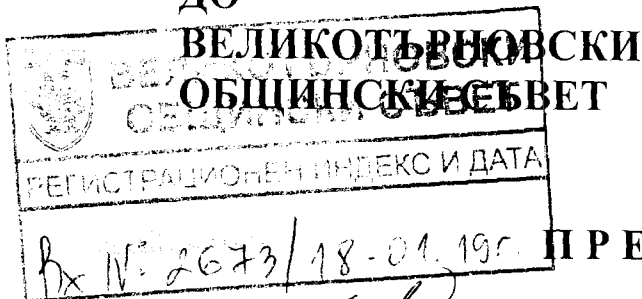 ДО
ВЕЛИКОТЪРНОВСКИ
ОБЩИНСКИ СЪВЕТ
ВЕЛИКОТЪРНОВСКИ
ОБЩИНСКИ СЪВЕТ
РЕГИСТРАЦИОНЕН ИНДЕКС И ДАТА
Вх № 2673/18-01.19г.
ПРЕ